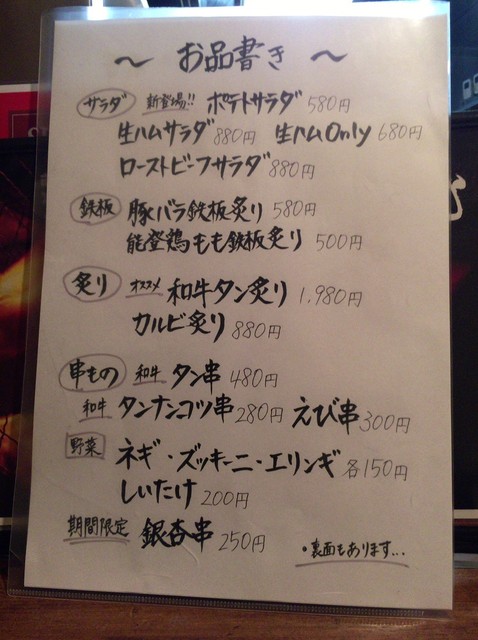 〜 お品書き 〜
サラダ 新登場!! ポテトサラダ 580円
生ハムサラダ 880円 生ハムOnly 680円
ローストビーフサラダ 880円
鉄板 豚バラ鉄板炙り 580円
能登鶏もも鉄板炙り 500円
炙り オススメ 和牛タン炙り 1,980円
カルビ炙り 880円
串もの 和牛 タン串 480円
和牛 タンナンコツ串 280円 えび串 300円
野菜 ネギ・ズッキーニ・エリンギ 各150円
しいたけ 200円
期間限定 銀杏串 250円
•裏面もあります...